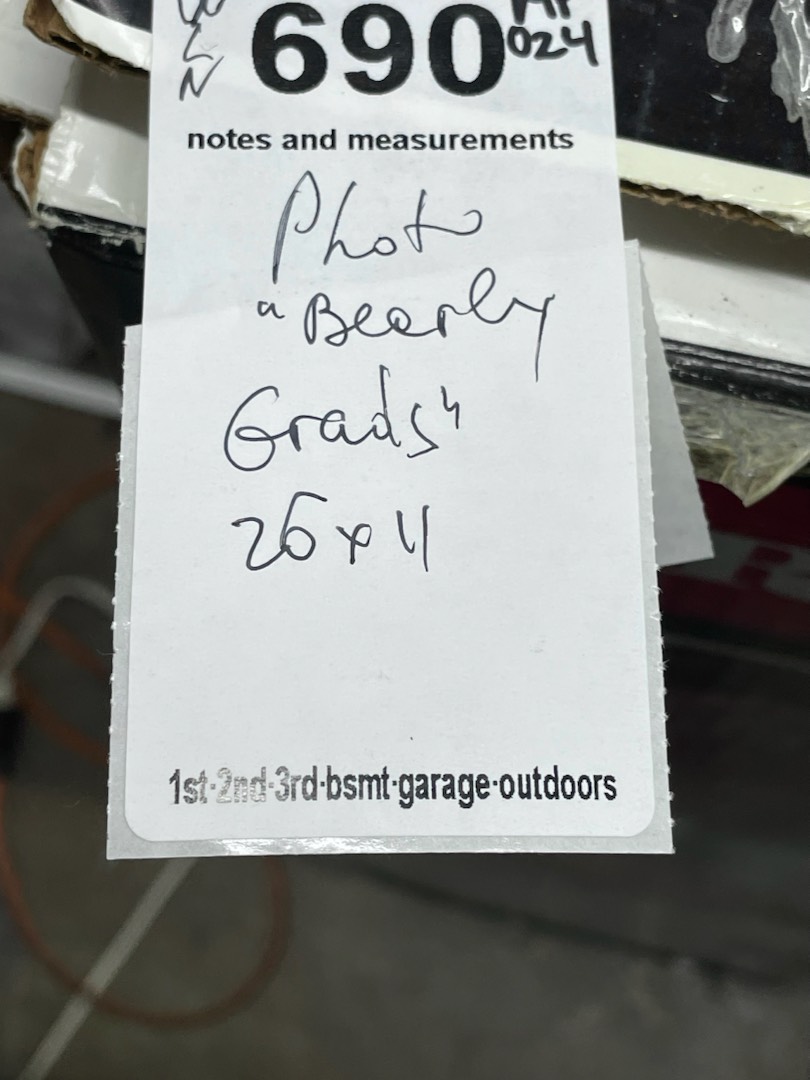 WLN
690
024
notes and measurements
Photo
"Bearly
Grads"
26 x 11
1st-2nd-3rd-bsmt-garage-outdoors